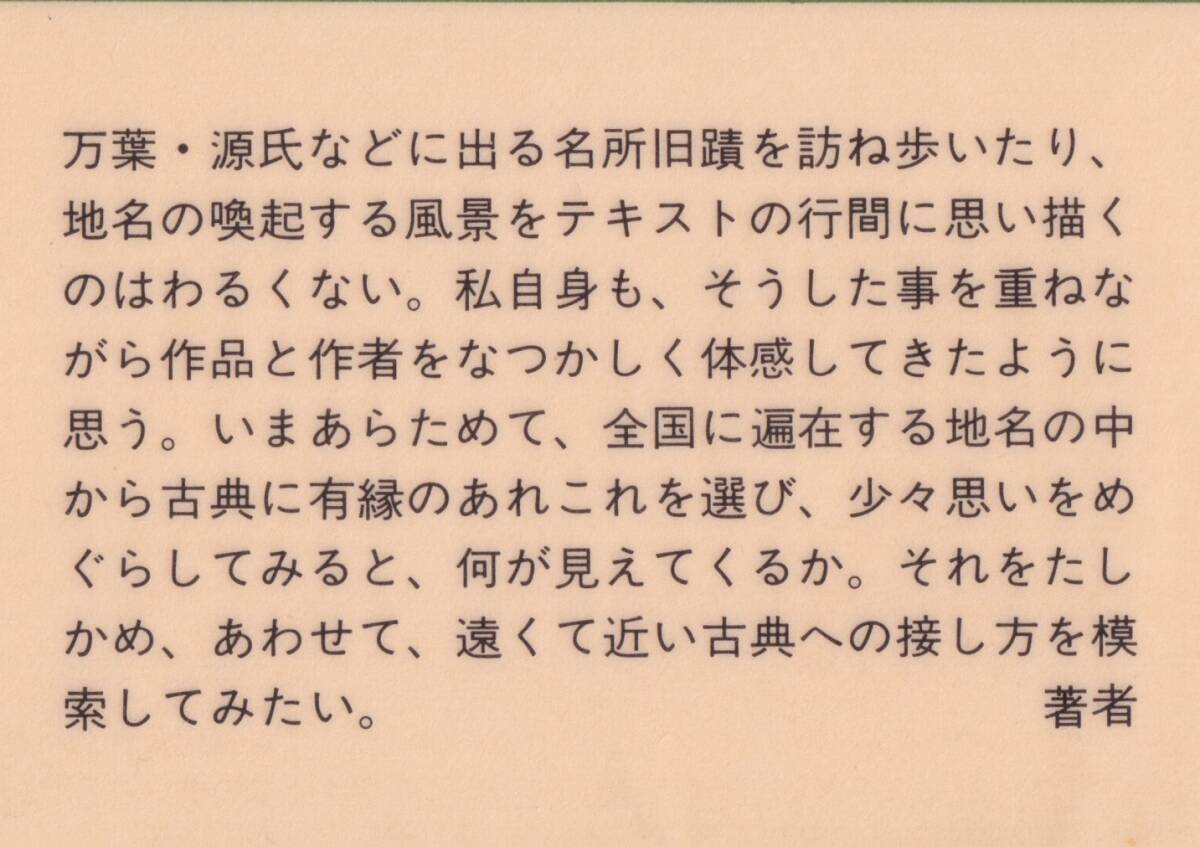 万葉・源氏などに出る名所旧蹟を訪ね歩いたり、
地名の喚起する風景をテキストの行間に思い描く
のはわるくない。私自身も、そうした事を重ねな
がら作品と作者をなつかしく体感してきたように
思う。いまあらためて、全国に遍在する地名の中
から古典に有縁のあれこれを選び、少々思いをめ
ぐらしてみると、何が見えてくるか。それをたし
かめ、あわせて、遠くて近い古典への接し方を模
索してみたい。 著者